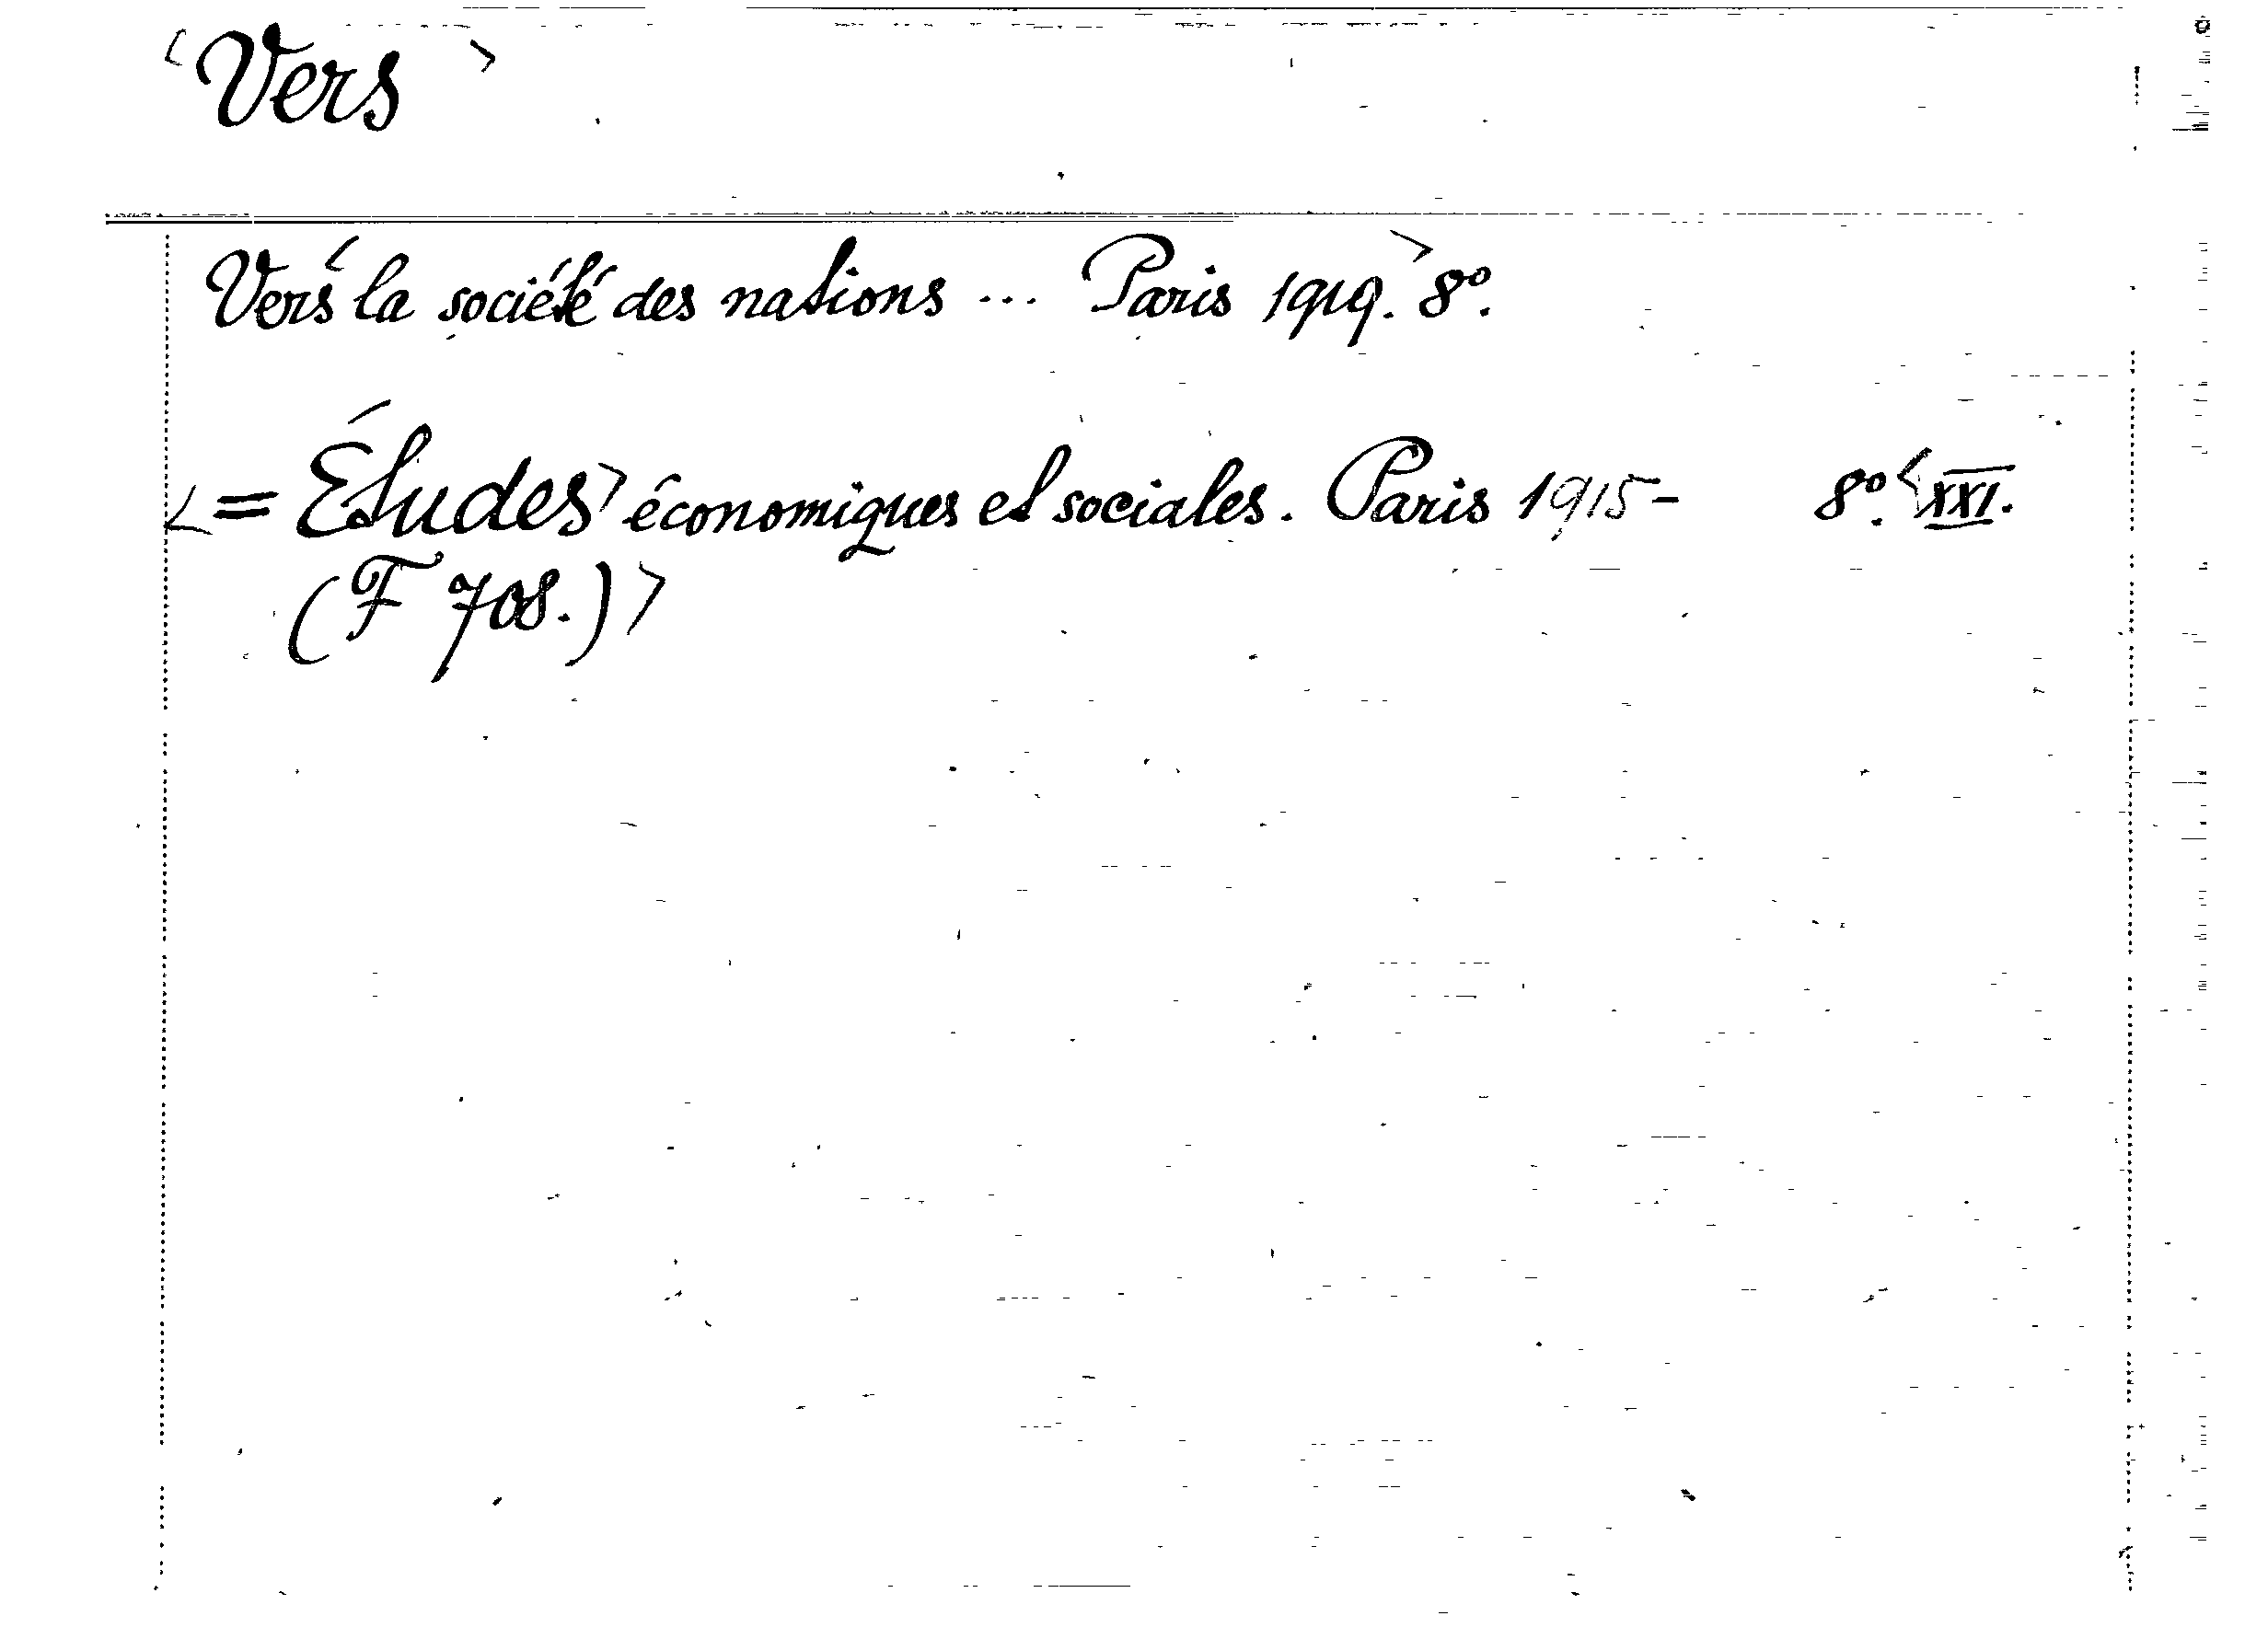 <Vers>
Vers <la société des nations ... Paris 1919.> 8º.
<= Études> économiques et sociales. Paris 1915- 8º. <XXI.
(F 708.)>